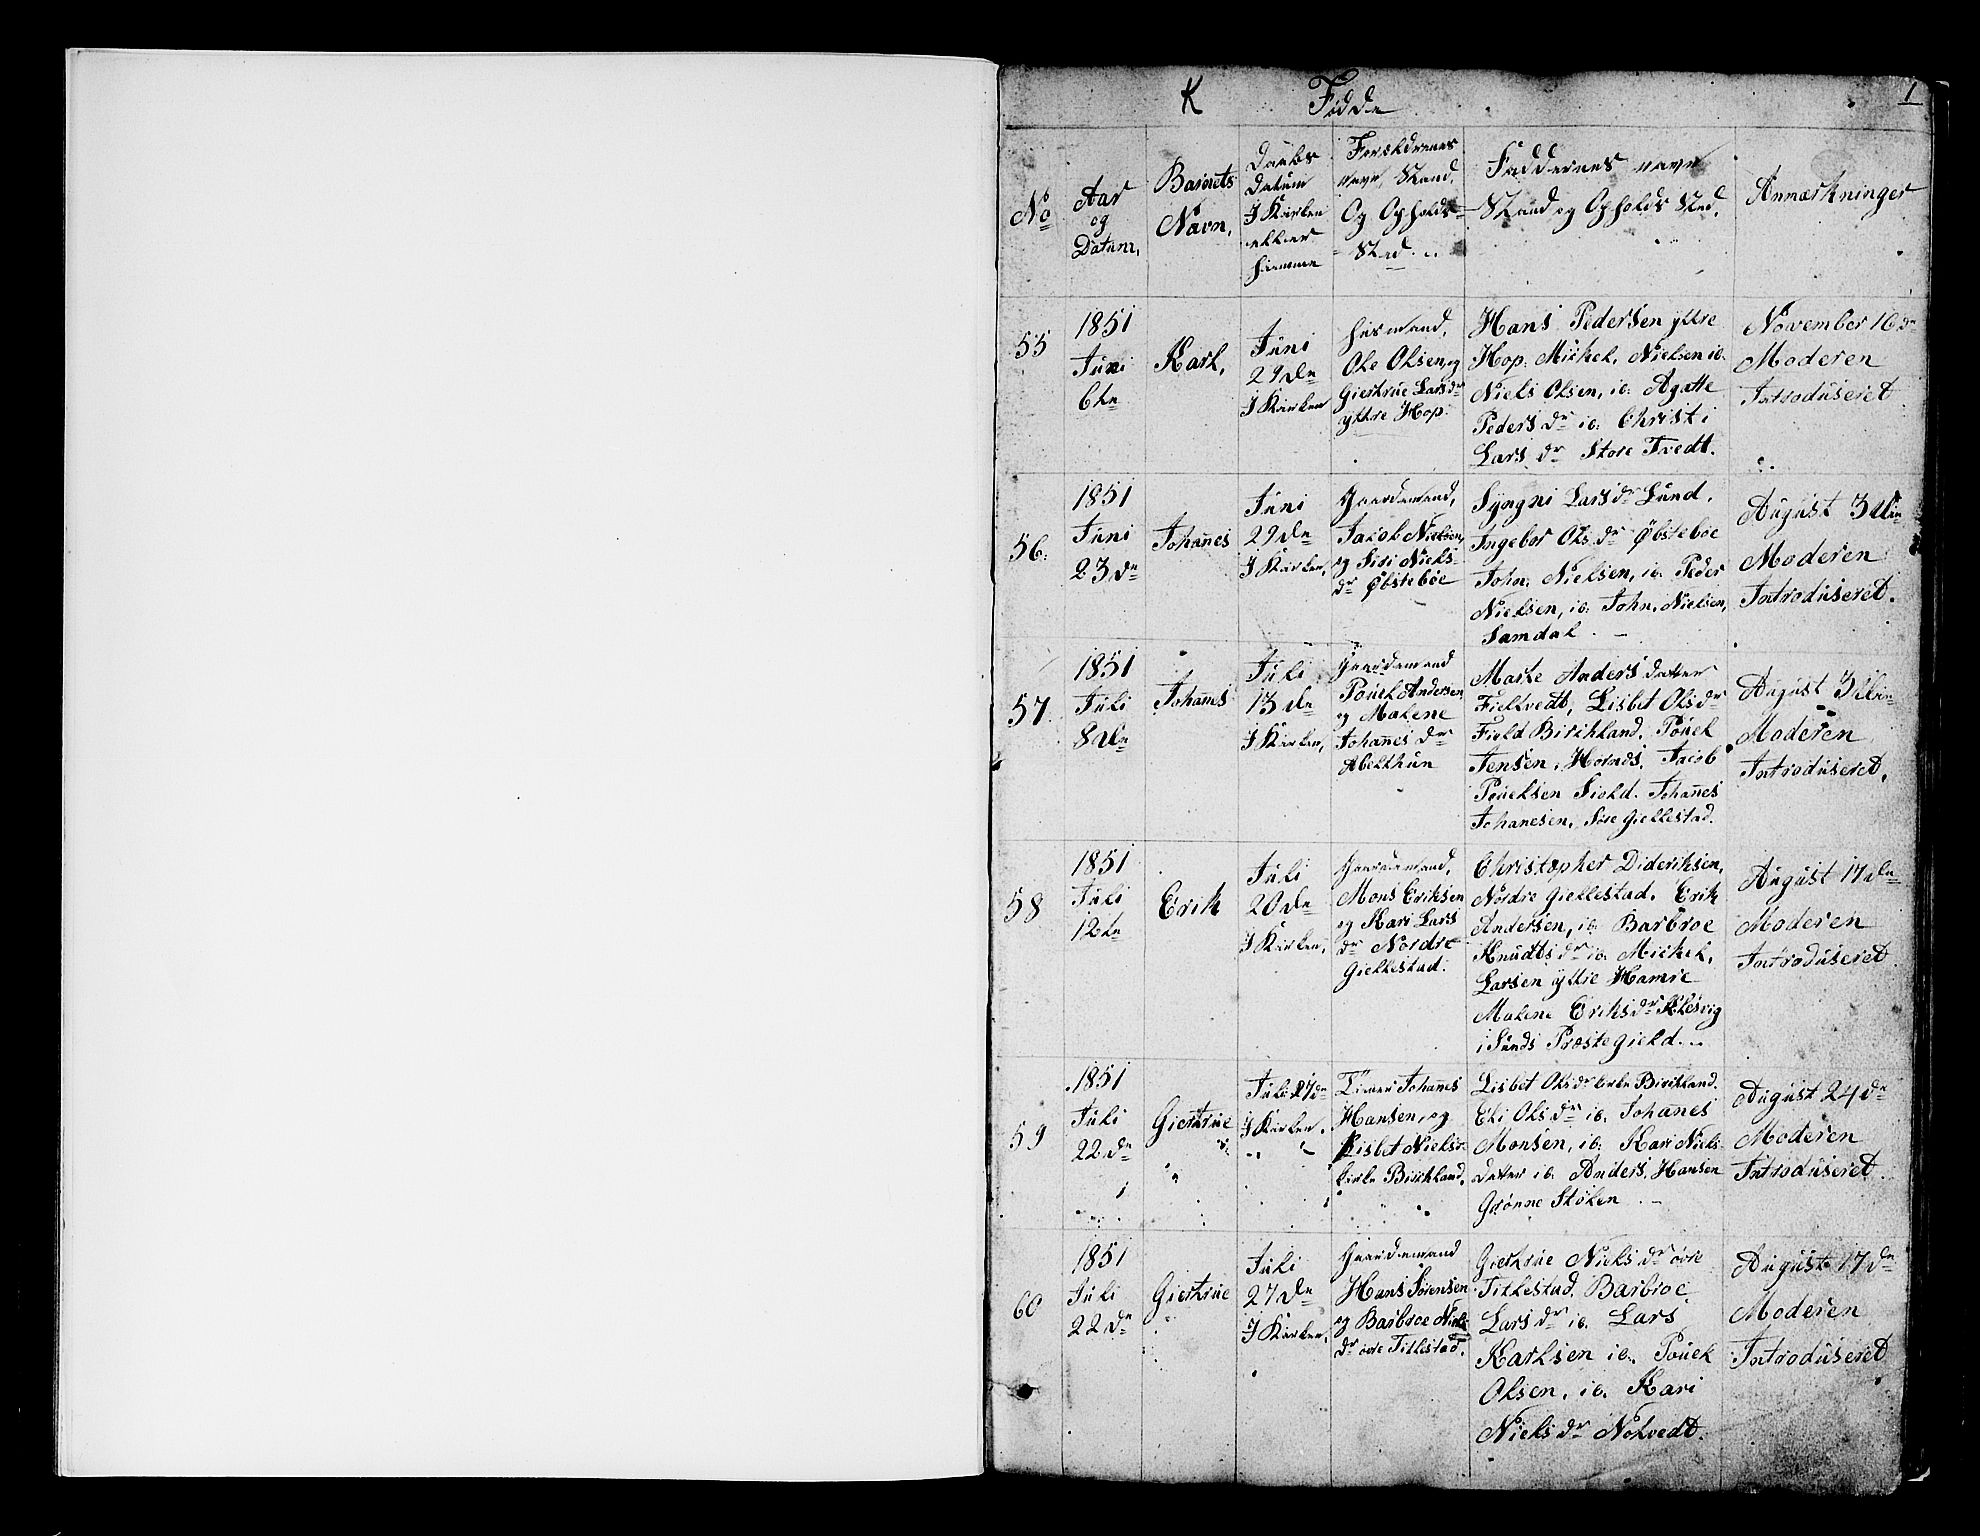 K Födde
1
No
Aar
og
Datum,
Barnets
Navn,
Daabs
Datum
I Kirken
eller
hiemme
Forældrenes
navn, Stand,
Og Opholds-
Sted
Faddernes navn
Stand og Opholds Sted.
Anmærkninger
55
1851
Juni
6te
Karl,
Juni
29de
I Kirken
Husmand,
Ole Olsen, og
Giertrue Lars dr
yttre Hop.
Hans Pedersen yttre
Hop. Michel, Nielsen ib.
Niels Olsen, ib. Agatte
Peders dr ib. Christi
Lars dr Store Tvedt.
November 16de
Moderen
Introduseret
56.
1851
Juni
23de
Johanes
Juni
29de
I Kirken,
Gaardemand,
Jacob Nielsen,
og Siri Niels-
dr Øbsteböe
Syngni Lars dr Sund,
Ingebor Ols dr Øbsteböe
John, Nielsen, ib. Peder
Nielsen, ib. John, Nielsen,
Samdal.
August 3die
Moderen
Introduseret.
57.
1851
Juli
8de
Johanes
Juli
13de
I Kirken,
Gaardemand
Pouel Andersen
og Malene
Johanes dr
Abelthun
Marte Anders datter
Fieltvedt, Lisbet Ols dr
Field Birchland, Pouel
Jensen, Hornes, Jacob
Pouelsen Siold. Johanes
Johanesen, Söre Giellestad.
August 3die
Moderen
Introduseret.
58
1851
Juli
12te
Erik
Juli
20de
I Kirken,
Gaardemand,
Mons Eriksen
og Kari Lars
dr Nordre
Giellestad.
Christopher Dideriksen,
Nordre Giellestad, Erik
Andersen, ib. Barbroe
Knudts dr ib. Michel,
Larsen yttre Hamre
Malene Eriks dr
i Sunds Præstegield.
August 17de
Moderen
Introduseret
59
1851
Juli
22de
Giertrue
Juli 27de
I Kirken.
Johanes
Hansen, og
Lisbet Niels
Birchland.
Lisbet Ols dr Birchland.
Eli Ols dr ib. Johanes
Monsen, ib. Kari Niels
datter ib. Anders, Hansen
Grönne Stölen
August 24de
Moderen
Introduseret
60
1851
Juli
22de
Giertrue
Juli
27de
I Kirken,
Gaardemand
Hans Sörensen
og Barbroe Niels
dr övre Titlestad.
Giertrue Niels dr övre
Titlestad. Barbroe
Lars dr ib. Lars
Karlsen ib. Pouel
Olsen, ib. Kari
Niels dr Nötvedt.
August 17de
Moderen
Introduseret